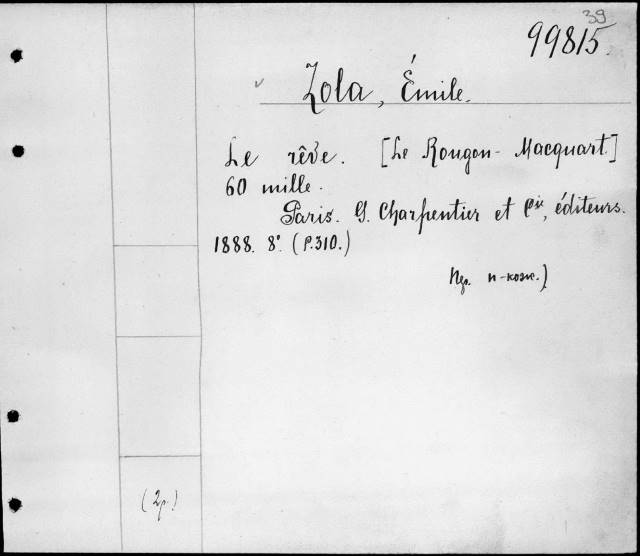 39
99815.
Zola, Émile.
Le rêve. [Le Rougon-Macquart]
60 mille.
Paris. G. Charpentier et Cie, éditeurs.
1888. 8°. (P. 310.)
п-кожс.)
(2р.)